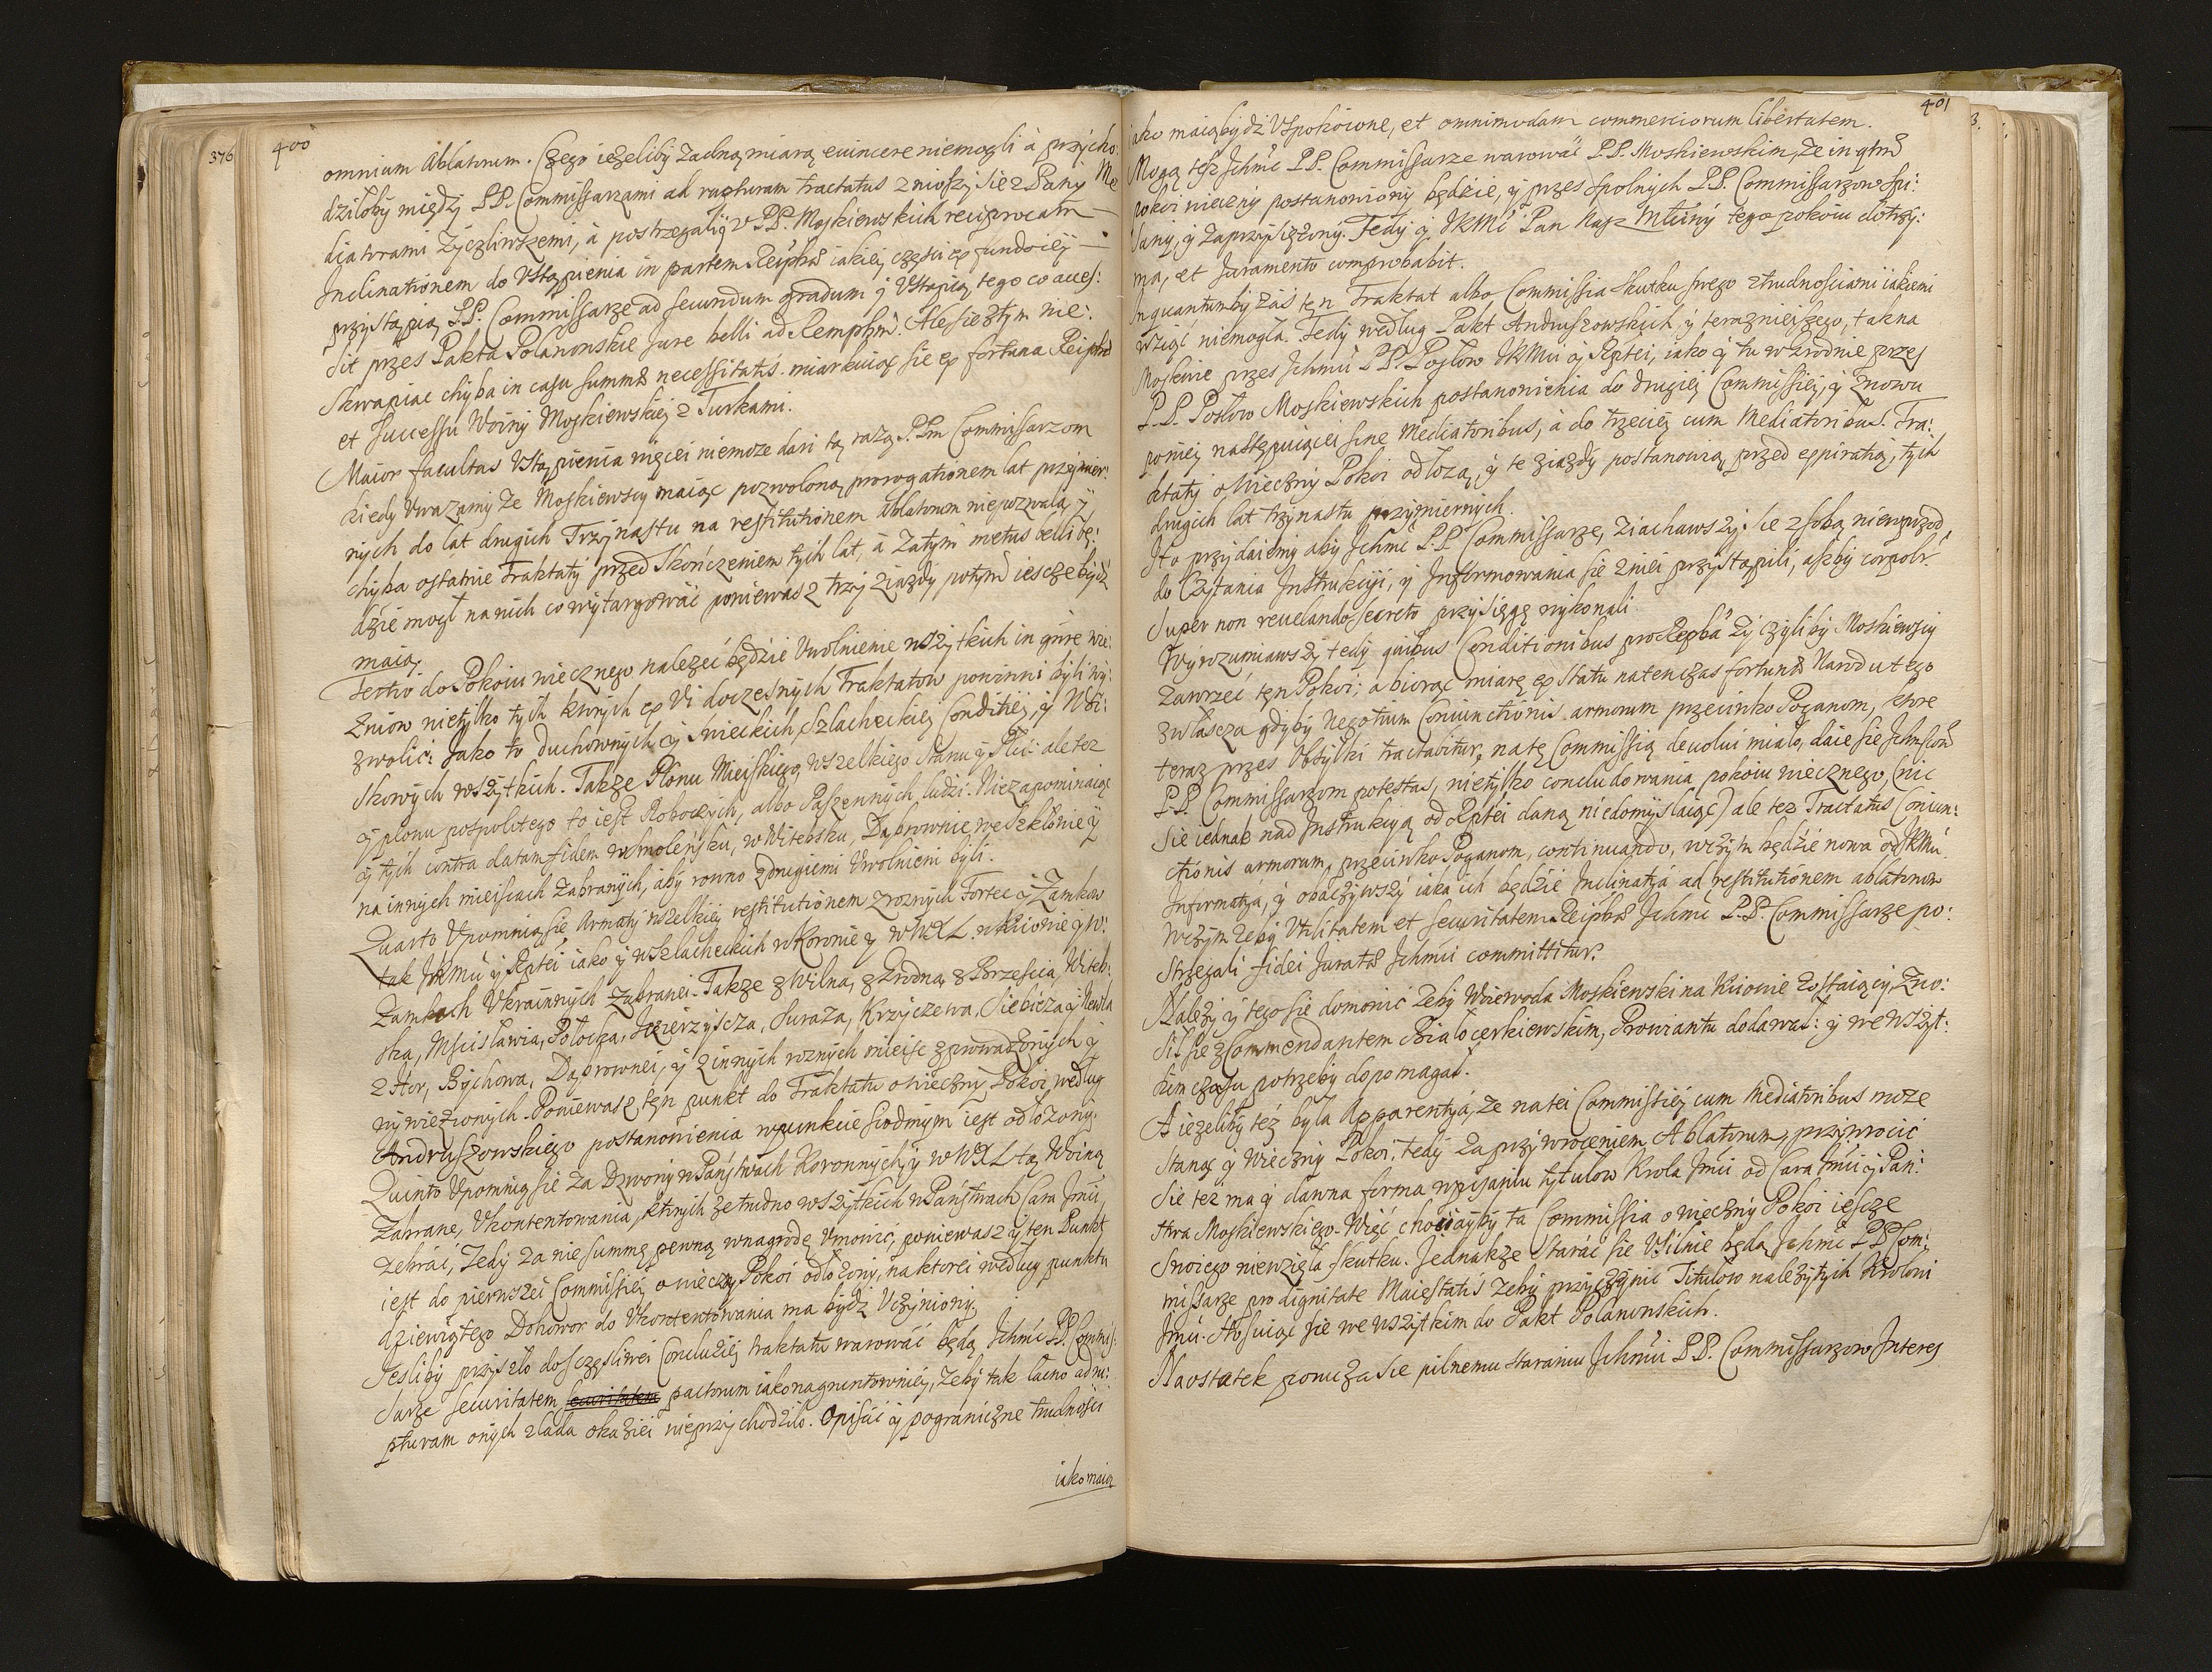 376
400
omnium Ablatorum. Czego ieżeliby żadną miarą euincere niemogli à przycho:
dziłoby między PP. Commissarzami ad rupturam tractatus zniozszy się z Pany Me
diatorami Zyczliwszemi, à postrzegaiąc v PP. Moskiewskich reciprocam
Inclinationem do Vstąpienia in partem Reipbae iakiey części ex fundociey
przystąpią PP. Commissarze ad secundum gradum y Vstąpią tego co acces:
sit przez Pakta Polanowskie Jure belli ad Rempbm. Ale się ztym nie:
skwapiac chyba in casu summae necessitatis. miarkuiąc się ex fortuna Reipbae
et successu Woiny Moskiewskiey z Turkami.
Maior facultas Vstąpienia więcei niemoze dari tą razą P.Pm Commissarzom
kiedy Vwazamy że Moskiewscy maiąc pozwoloną prorogationem lat przymier:
nych do lat drugich Trzynastu na restitutionem Ablatorum niepozwalą y
chyba ostatnie Traktaty przed skończeniem tych lat, à zatym metus belli bę:
dzie mogł na nich co wytargować poniewasz trzy ziazdy potym iescze bydź
maią.
Tertio do Pokoiu wiecznego nalezeć będzie Vwolnienie wszytkich in gnre wię:
zniow nietylko tych ktorych ex Vi doczesnych Traktatow powinni byli wy:
zwolić: Jako to duchownych y swieckich, Szlacheckiey Conditiey, y Woi:
skowych wszytkich. Także Plonu Mieiskiego, wszelkiego stanu y Płci: ale tez
y plonu pospolitego to iest Roboczych, albo Paszennych ludzi. Niezapominaiąc
y tych contra datam fidem w Smoleńsku, w Witebsku, Dąbrownie, we Szkłowie y
na innych mieiscach zabranych, aby rowno z drugiemi Vwolnieni byli.
Quarto Vpomnią się Armaty wszelkiey restitutionem z roznych Fortec y Zamkow
tak JKMci y Rptei iako y w Szlacheckich w Koronie y w WXL. w Kiiowie y w:
Zamkach Vkrainnych zabranei. Także z Wilna, z Grodna, z Brzescia, Witeb:
ska, Mscisławia, Połocka, Jezierzyscza, Suraża, Krzyczewa, Siebieża y Newla
z Hor, Bychowa, Dąbrownei, y z innych roznych mieisc zprowadzonych y
wywiezionych. Poniewasz ten punkt do Traktatu o wieczny Pokoi, według
Andruszowskiego postanowienia w punkcie siodmym iest odłożony.
Quinto Vpomnią się za Dzwony w Państwach Koronnych, y w WXL tą Woiną
zabrane, Vkontentowania, ktorych że trudno wszytkich w Państwach Cara Jmci,
zebrać, Tedy za nie summę pewną w nagrodę Vmowić, poniewasz y ten Punkt
iest do pierwszei Commissiey o wieczny Pokoi odłożony, na ktorei według punktu
dziewiątego Dohowor do Vkontentowania ma bydź Vczyniony.
Jesliby przyszło do szczęsliwei Conclusiey traktatu warować będą Jchmć PP. Commis:
sarze securitatem pactorum iako nagruntowniey, żeby tak łacno ad ru:
pturam onych z lada okaziei nieprzychodziło. Opisać y pograniczne trudności
iako maią
401
3.
iako maią bydź Vspokoione, et omnimodam commerciorum libertatem.
Mogą tesz Jchmć PP. Commissarze warować PP. Moskiewskim, że in qtm
pokoi wieczny postanowiony będzie, y przes spolnych PP. Commissarzow spi:
sany, y zaprzysiężony. Tedy y JKMć Pan Nasz Młciwy tego pokoiu dotrzy:
ma, et Juramento comprobabit.
In quantumby zas ten Traktat albo Commissia skutku swego ztrudnosciami iakiemi
wziąć niemogła. Tedy według Pakt Andruszowskich y teraznieiszego, tak na
Moskwie przes Jchmci PP. Posłow JKMci y Rptei, iako y tu w Grodnie przes
PP. Posłow Moskiewskich postanowienia do drugiey Commissiey, y znowu
poniey następuiącei sine Mediatoribus, à do trzeciey cum Mediatoribus. Tra:
ktaty o Wieczny Pokoi odłożą, y te ziazdy postanowią przed expiratią, tych
drugich lat trzynastu przymiernych.
Ito przydaiemy aby Jchmć PP. Commissarze, ziachawszy się z sobą nieruprzod,
do Czytania Instrukcyi, y Informowania się z niei przystąpili, ażby corpolr.
super non reuelando secreto przysięgę wykonali.
Wyrozumiawszy tedy quibus Conditionibus pro Repba życzyliby Moskiewscy
Zawrzeć ten Pokoi; a biorąc miarę ex statu natenczas fortunae Narodu tego
zwłascza gdyby Negotium Coniunctionis armorum przeciwko Poganom, ktore
teraz przes Obsyłki tractabitur, na tę Commissią deuolui miało, daie się Jchmciom
PP. Commissarzom potestas, nietylko concludowania pokoiu wiecznego, (nic
się iednak nad Instrukcyą od Rptei daną niedomyslaiąc) ale tez Tractatus Coniun:
ctionis armorum, przeciwko Poganom, continuando, wczym będzie nowa od JKMci
Informatya, y obaczywszy iaka ich będzie Inclinatya ad restitutionem ablatorum
wczym żeby Vtilitatem et securitatem Reipbae Jchmć PP. Commissarze po:
strzegali fidei Juratae Jchmci committitur.
Należy y tego się domowić żeby Woiewoda Moskiewski na Kiiowie zostaiący, zno:
sił się z Commendantem Białocerkiewskim, Prowiantu dodawał: y we wszyt:
kim czasu potrzeby dopomagał.
A ieżeliby też była Apparentya, że na tei Commissiey cum Mediatoribus może
stanąć y Wieczny Pokoi, tedy za przywroceniem Ablatorum, przywrocić
się też ma y dawna forma wpisaniu tytułow Krola Jmci od Cara Jmci y Pań:
stwa Moskiewskiego. Więc chociażby ta Commissia o wieczny Pokoi iescze
Swoiego niewzięła skutku. Jednakże starać się Vsilnie będą Jchmć PP Com:
missarze pro dignitate Maiestatis żeby przyczynić Titułow należytych Krolowi
Jmci. Stosuiąc się we wszytkim do Pakt Polanowskich.
Naostatek porucza się pilnemu staraniu Jchmci PP. Commissarzow Interes